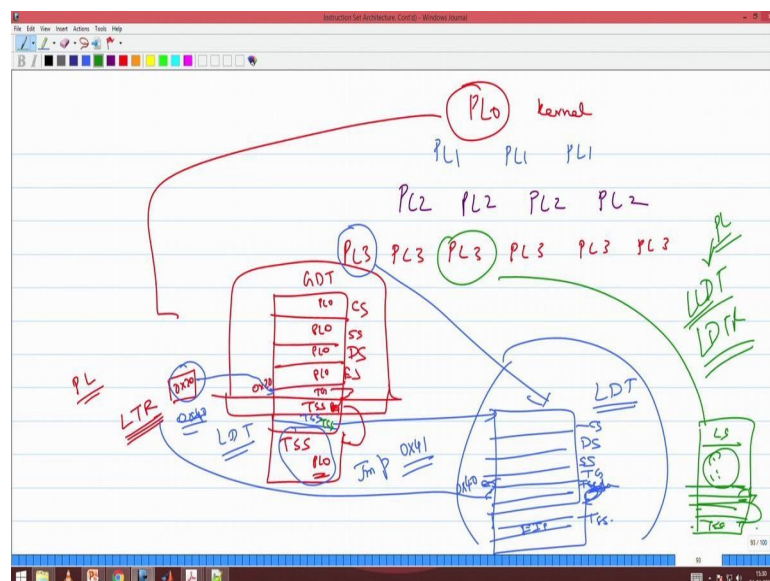 Instruction Set Architecture, Cont'd) - Windows Journal
File Edit View Insert Actions Tools Help
B I
PL0 kernel
PL1 PL1 PL1
PL2 PL2 PL2 PL2
PL3 PL3 PL3 PL3 PL3 PL3
PL
LDT
LDTR
GDT
PL0 CS
PL0 SS
PL0 DS
PL0 ES
0x20
TSS
PL
0x20
LTR
0x40
LDT
TSS
TSS
PL0
Jmp 0x41
LDT
CS
DS
SS
TG
0x40
TSS
EIP
TSS.
CS
TSS
93 / 100
93
15:30